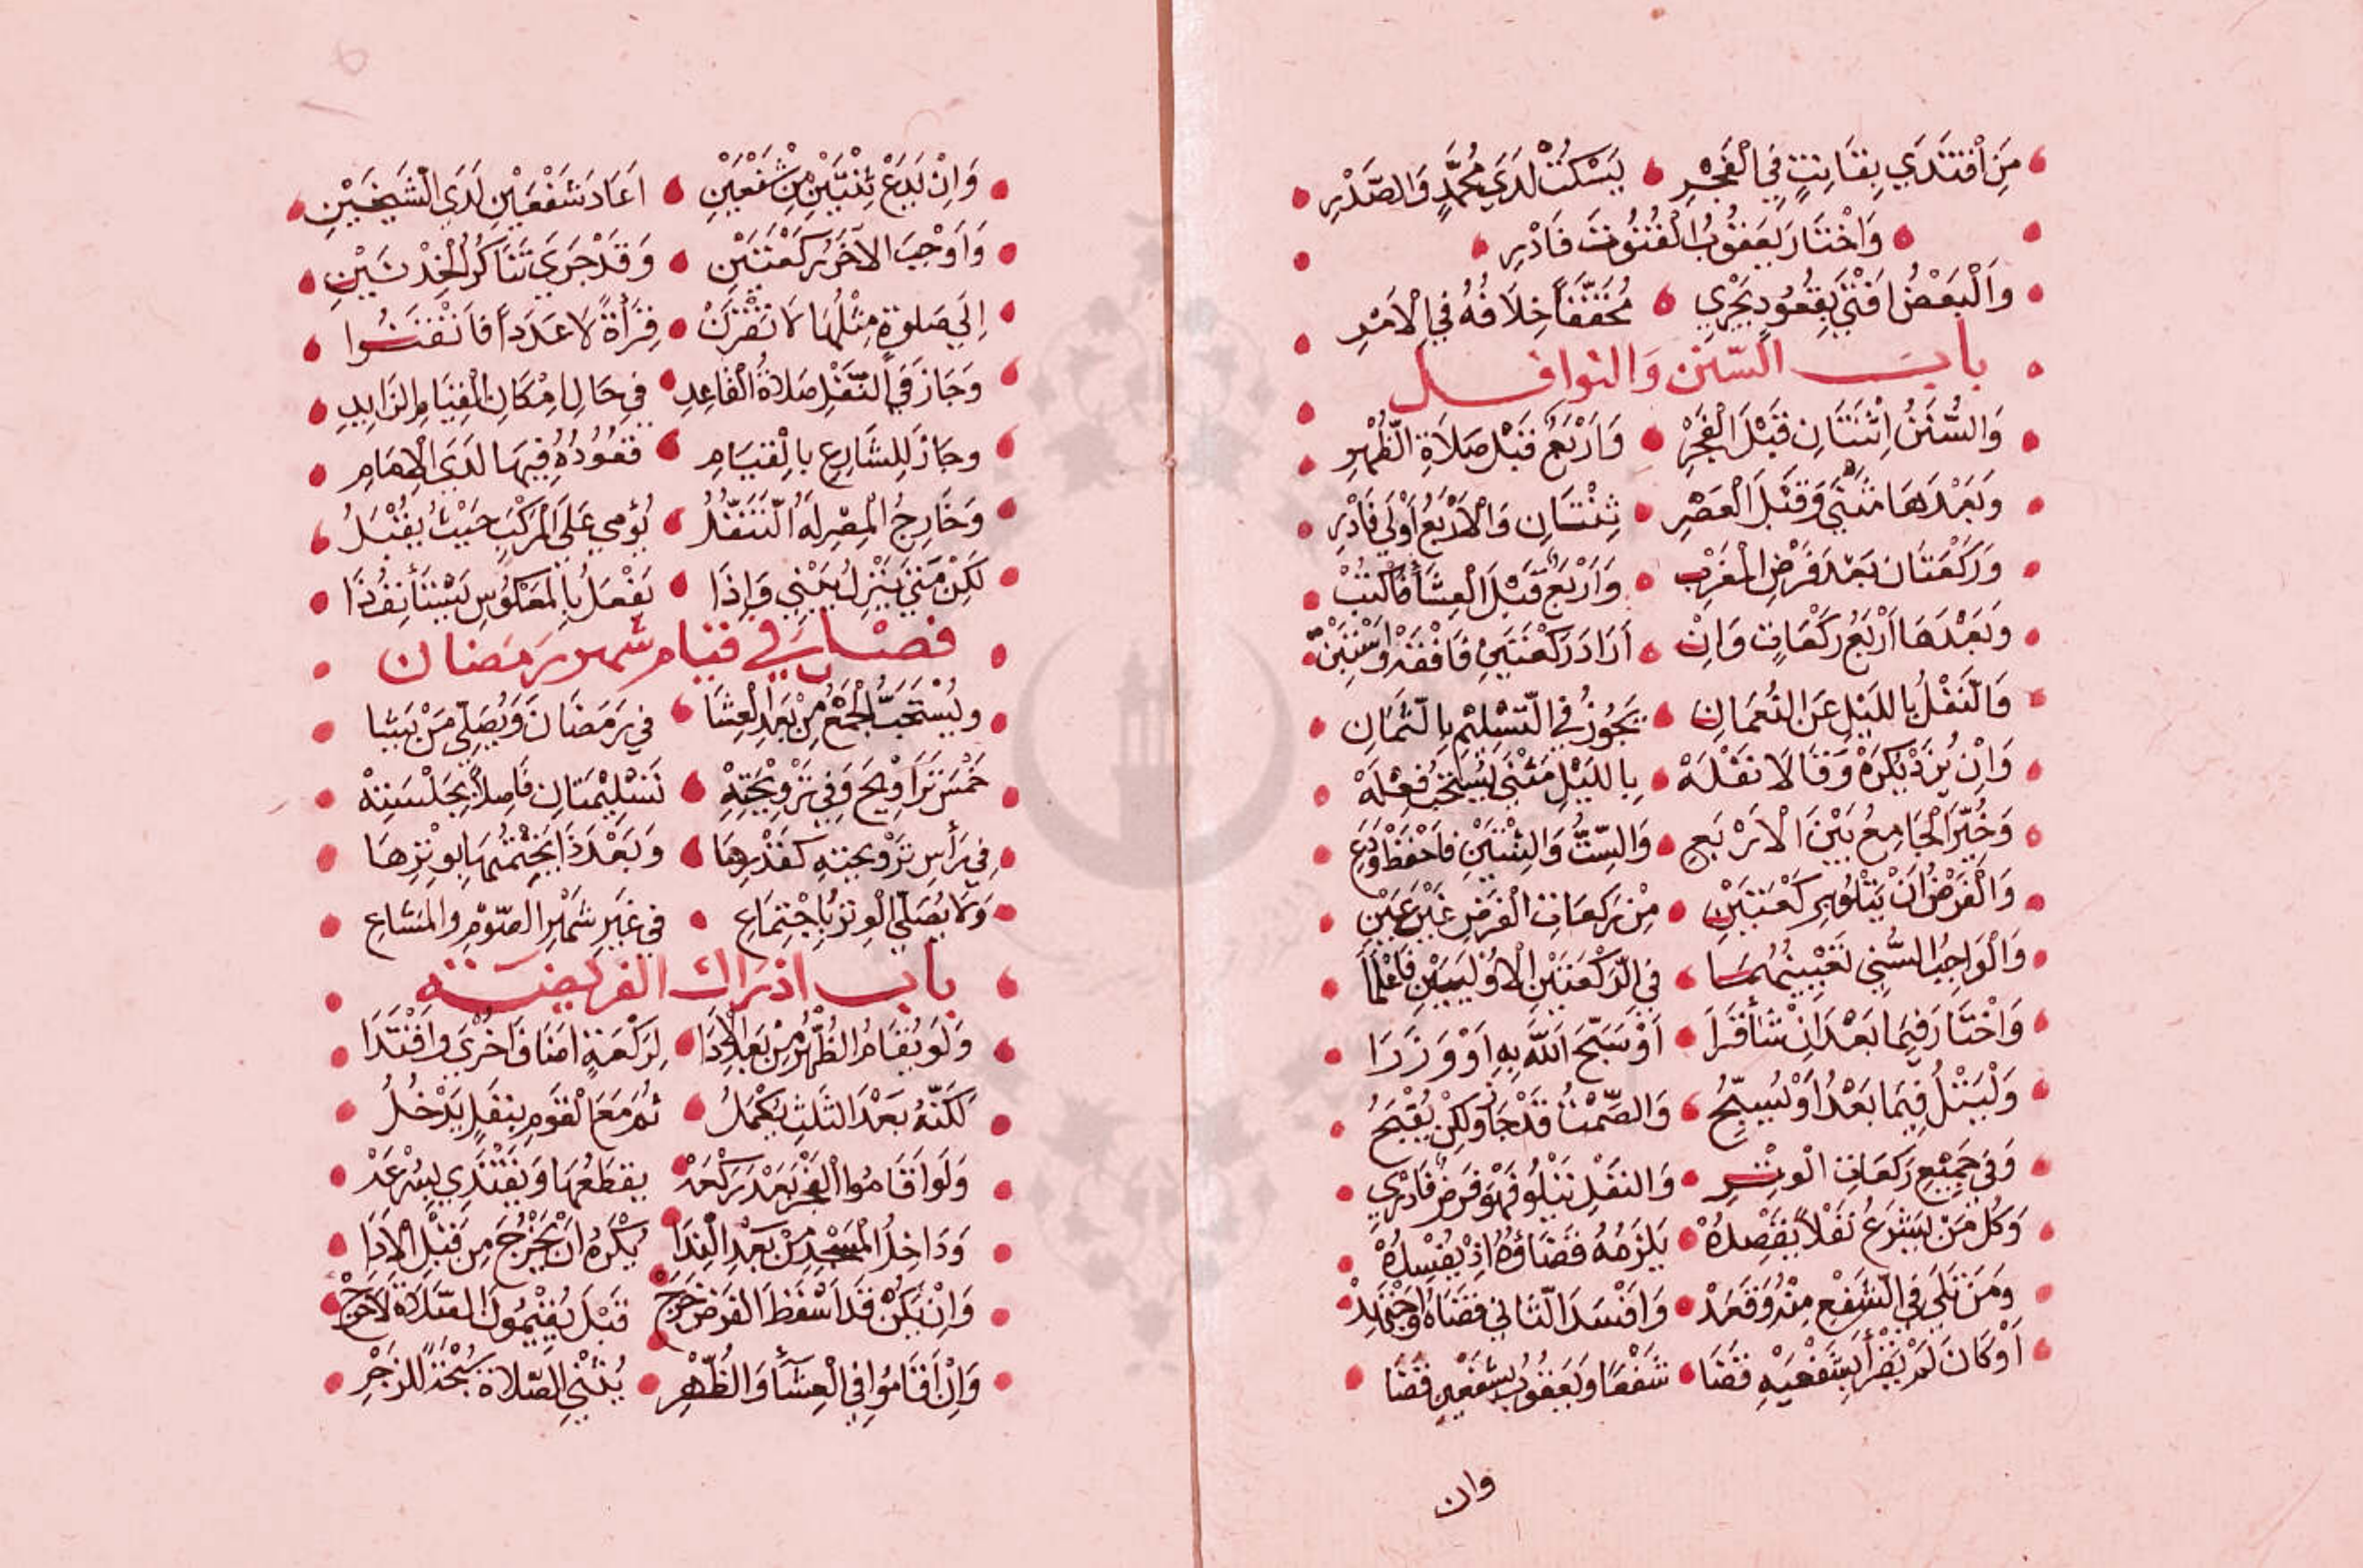 مَنِ اقْتَدَي بِقَانِتٍ فِي الْفَجْرِ يَسْكُتْ لَدَي مُحَمَّدٍ وَالصَّدْرِ
وَاخْتَارَ يَعْقُوبُ الْقُنُوتَ فَادْرِ
وَالْبَعْضُ افْتَى بِقُعُودٍ يَجْرِي مُخَفَّفاً خِلَافُهُ فِي الْاَمْرِ
باب السّنن والنوافل
وَالسُّنَنُ اِثْنَتَانِ قَبْلَ الْفَجْرِ وَارْبَعٌ قَبْلَ صَلَاةِ الظُّهْرِ
وَبَعْدَهَا مَثْنَي وَقَبْلَ الْعَصْرِ ثِنْتَانِ وَالْاَرْبَعُ اَوْلَي فَادْرِ
وَرَكْعَتَان بَعْدَ فَرْضِ الْمَغْرِبِ وَارْبَعٌ قَبْلَ الْعِشَا فَاكْتُبْ
وَبَعْدَهَا ارْبَعُ رَكْعَاتٍ وَاِنْ اَرَادَ رَكْعَتَيْنِ فَافْقَهْ وَاسْتَبِنْ
وَالنَّفْلُ بِاللَيْلِ عَنِ النُّعْمَانِ يَجُوزُ فِي التَّسْلِيْمِ بِالثَّمَانِ
وَاِنْ يُزَدْ يُكْرَهْ وَقَالَا نَفْلَهْ بِاللَيْلِ مَثْنَى يُسْتَحَبُّ فِعْلَهْ
وَخُيِّرَ الْجَامِعُ بَيْنَ الْاَرْبَعِ وَالسِّتِّ وَالثِنْتَيْنِ فَاحْفَظْ وَدَعِ
وَالْفَرْضُ اَنْ يَتْلُو بِرَكْعَتَيْنِ مِنْ رَكَعَاتِ الْفَرْضِ غَيْرَ عَيْنِ
وَالْوَاجِبُ السُّنِي تَعْيِينُهُمَا فِي الرَّكْعَتَيْنِ الْاُوْلَيَيْنِ فَاعْلَمَا
وَاخْتَارَ فِيمَا بَعْدَ اِنْ شَا قَرَا اَوْ سَبَّحَ اللَّهَ بِهِ اَوْ وَزَرَا
وَلْيَتْلُ فِيمَا بَعْدُ اَوْ يُسَبِّحُ وَالصَّمْتُ قَدْ جَا وَلكِنْ يُقْبَحُ
وَفِي جَمِيْعِ رَكَعَاتِ الْوِتْرِ وَالنَفْلِ يَتْلُو فَهْوَ فَرْضٌ فَادْرِي
وَكُلُّ مَنْ يَشْرَعُ نَفْلاً يَقْصِدُهْ يَلْزَمُهُ قَضَاؤُهُ اِذْ يُفْسِدُهْ
وَمَنْ تَلَي فِي الشَّفْعِ مِنْهُ وَقَعَدْ وَافْسَدَ الثَّانِي قَضَاهُ وَاجْتَهِدْ
اَوْ كَانَ لَمْ يَقْرَأْ بِشَفْعَيْهِ قَضَا شَفْعًا وَيَعْقُوبُ بِشَفْعَيْنِ قَضَا
وان
وَاِنْ يَدَعْ ثِنْتَيْنِ مِنْ شَفْعَيْنِ اَعَادَ شَفْعَيْنِ لَدَي الشَيْخَيْنِ
وَاَوْجَبَ الآخَرُ رَكْعَتَيْنِ وَقَدْ جَرَي تَنَاكُرُ الْخِدْنَيْنِ
اِلَي صَلوةٍ مِثْلُهَا لَا تَقْتَرِنْ قِرَأَةً لَا عَدَداً
وَجَازَ فِي النَّفْلِ صَلاةُ الْقَاعِدِ فِي حَالِ امْكَانِ الْقِيَامِ الزَايِدِ
وجَازَ لِلشَّارِعِ بِالْقيَامِ قُعُودُهُ فِيهَا لَدَي الْاِمَامِ
وَخَارِجُ الْمِصْرِ لَهُ التَّنَفُّلُ يُؤمِي عَلَي الْمَرْكَبِ حَيْثُ يُقْبِلُ
لَكِنْ مَتَي يَنْزِلُ يَبْنِي وَاِذَا يَفْعَلُ بِالْمَعْكُوسِ يَسْتَأنِفُ ذَا
فصل في قيام شهر رمضان
ويُسْتَحَبُّ الْجَمْعُ مِنْ بَعْدِ الْعِشَا فِي رَمَضَانَ وَيُصَلِّي مَنْ يَشَا
خَمْسَ تَرَاوِيْحَ وَفِي تَرْوِيْحَتِهْ تَسْلِيْمَتَانِ فَاصِلاً بِجَلْسَتِهْ
فِي رَأْسِ تَرْوِيحَتِهِ كَقَدْرِهَا وَبَعْدَ ذَا يَخْتِمُهَا بِوِتْرِهَا
وَلَا يُصَلِّي الْوِتْرُ بِاجْتِمَاعِ فِي غَيْرِ شَهْرِ الصَّوْمِ والمَشَاعِ
باب ادراك الفريضة
وَلَوْ يُقَامُ الظُّهْرُ مِنْ بَعْدِ الْاَدَا لِرَكْعَةٍ اضَافَ اُخْرَي وَاقْتَدَا
لَكِنَّهُ بَعْدَ الثَلَثِ يُكْمِلُ ثُمَّ مَعَ الْقَوْمِ بِنَفْلٍ يَدْخُلُ
وَلَوْ اَقَامُوا الْفَجْرَ بَعْدَ رَكْعَهْ يَقطَعُهَا وَيَقْتَدِي بِسُرْعَهْ
وَدَاخِلُ الْمَسْجِدِ مِنْ بَعْدِ الْنِدَا يُكْرَهُ اَنْ يَخْرُجَ مِن قَبْلِ الْاَدَا
وَاِنْ يَكُنْ قَدْ اَسْقَطَ الفَرْضَ خَرَجْ قَبْلَ يُقِيْمُونَ الصَّلَاةَ لَا حَرَجْ
وَاِنْ اَقَامُوا فِي الْعِشَآ وَالظُّهْرِ الصَّلَاةَ لِلزَجْرِ